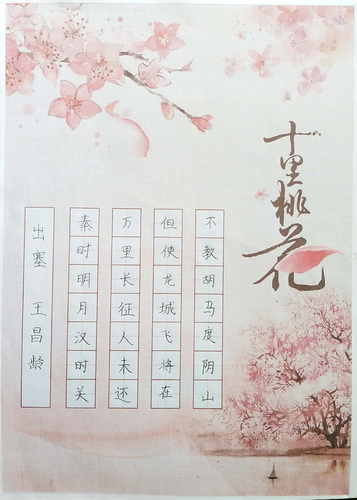 十里桃花
出塞 王昌龄
秦时明月汉时关
万里长征人未还
但使龙城飞将在
不教胡马度阴山